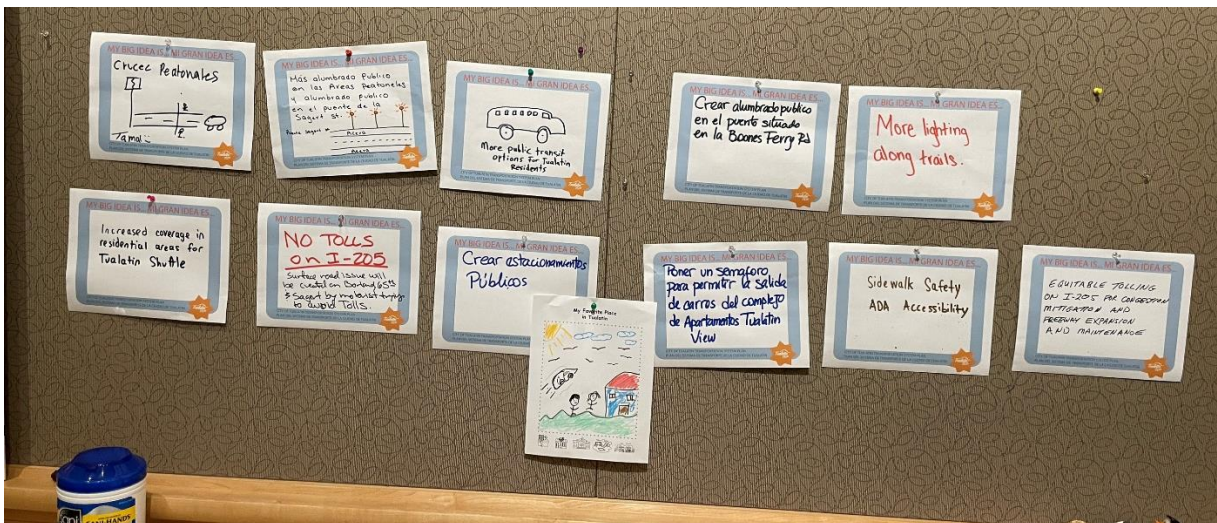 MY BIG IDEA IS... MI GRAN IDEA ES...
Cruces Peatonales
Tamal
MY BIG IDEA IS... MI GRAN IDEA ES...
Más alumbrado Publico
en las Areas Peatonales
y alumbrado publico
en el puente de la
Sagert St.
Acera
Acera
MY BIG IDEA IS... MI GRAN IDEA ES...
More public transit
options For Tualatin
Residents
MY BIG IDEA IS... MI GRAN IDEA ES...
Crear alumbrado publico
en el puente situado
en la Boones Ferry Rd
MY BIG IDEA IS... MI GRAN IDEA ES...
More lighting
along trails.
MY BIG IDEA IS... MI GRAN IDEA ES...
Increased coverage in
residential areas for
Tualatin Shuttle
MY BIG IDEA IS... MI GRAN IDEA ES...
NO TOLLS
on I-205
Surface road issue will
be created on Borland, 65th
& Sagert by motorist trying
to avoid Tolls.
MY BIG IDEA IS... MI GRAN IDEA ES...
Crear estacionamientos
Públicos
My Favorite Place
in Tualatin
MY BIG IDEA IS... MI GRAN IDEA ES...
Poner un semaforo
para permitir la salida
de carros del complejo
de Apartamentos Tualatin
View
MY BIG IDEA IS... MI GRAN IDEA ES...
Sidewalk Safety
ADA Accessibility
MY BIG IDEA IS... MI GRAN IDEA ES...
EQUITABLE TOLLING
ON I-205 FOR CONGESTION
MITIGATION AND
FREEWAY EXPANSION
AND MAINTENANCE
SANI-HANDS